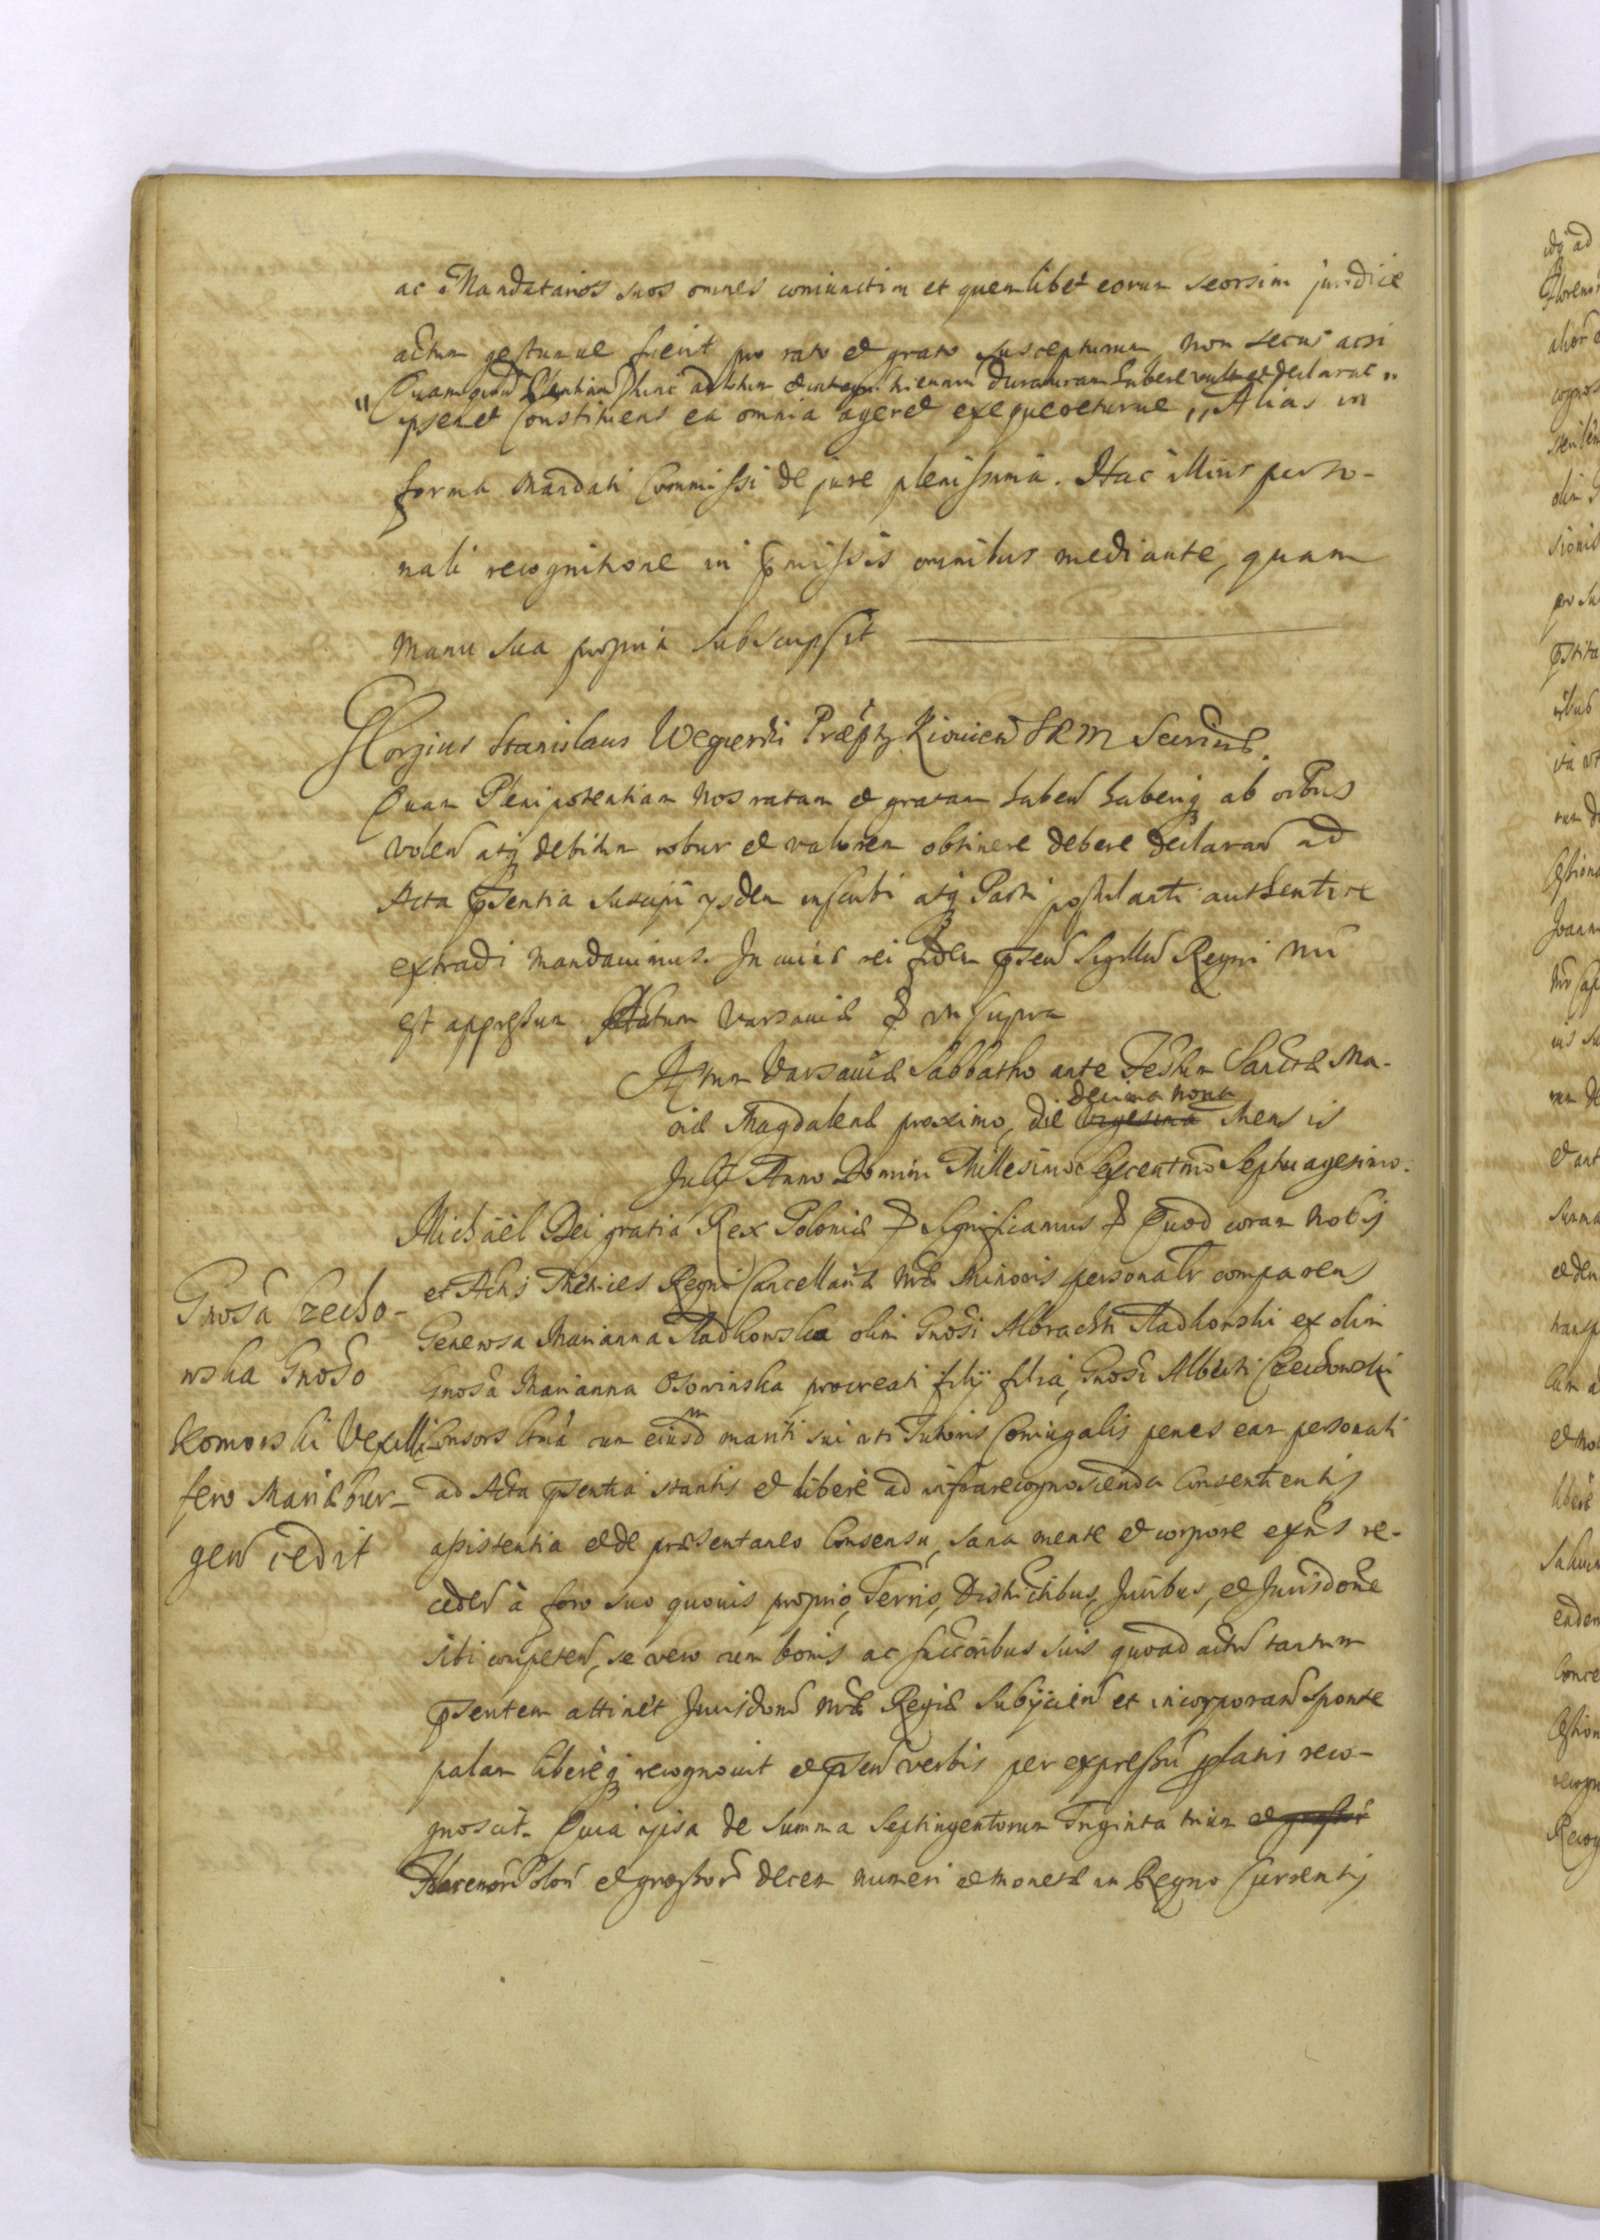 ac Mandatarios suos omnes coniunctim et quemlibet eorum seorsim juridice
actum gestumue fuerit pro rato et grato suscepturum non secus acsi
"Quam quidem hinc ad duraturam habere vult et declarat"
ipsemet Constituens ea omnia ageret exequereturue, "Alias in
forma Mandati Commissi de jure plenissima. Hac illius perso-
nali recognitione in pmissis omnibus mediante, quam
Manu sua propria subscripsit
Georgius Stanislaus Wegierski Præptz Kiouien SRM Secrius
Quam Plenipotentiam Nos ratam et gratam haben haberiq ab oibus
volen atq debitum robur et valorem obtinere debere declaran ad
Acta psentia suscipi ysdem inscribi atq Parti postulanti authentice
extradi mandauimus. In cuius rei fidem psen Sigillu Regni Nri
est appressum Datum Varsauiæ ut supra
Actum Varsauiæ Sabbatho ante Festum Sanctæ Ma-
riæ Magdalenæ proximo, die decima nona Vigesima Mensis
July Anno Domini Millesimo Sexcentmo Septuagesimo.
Michaël Dei gratia Rex Poloniæ Significamus Quod coram Nobis
et Actis Metrices Regni Cancellariæ Nræ Minoris personalr comparens
Generosa Marianna Radkowska olim Gnosi Albrachti Radkonski ex olim
Gnosa Marianna Osowinska procreati filij filia, Gnosi Alberti Czechowski
Consors ltma cum eiusdm mariti sui uti Tutoris Coniugalis penes eam personali
ad Acta psentia stantis et liberè ad infrarecognoscenda Consentientis
assistentia et de præsentaneo Consensu, sana mente et corpore exns re-
ceden à foro suo quouis proprio, Terris, Districtibus, Juribus, et Jurisdone
sibi competen, se vero cum bonis ac succoribus suis quoad actu tantum
psentem attinet Jurisdoni Nræ Regiæ subijcien et incorporan sponte
palam libereq recognouit et psen verbis per expressu platis reco-
gnoscit. Quia ipsa de summa Septingentorum Triginta trium et grossor
Florenor Polon et grossor decem numeri et monetæ in Regno Currentis
Gnosa Czecho-
wska Gnoso
Komorski Vexilli
fero Mariæbur-
gen cedit